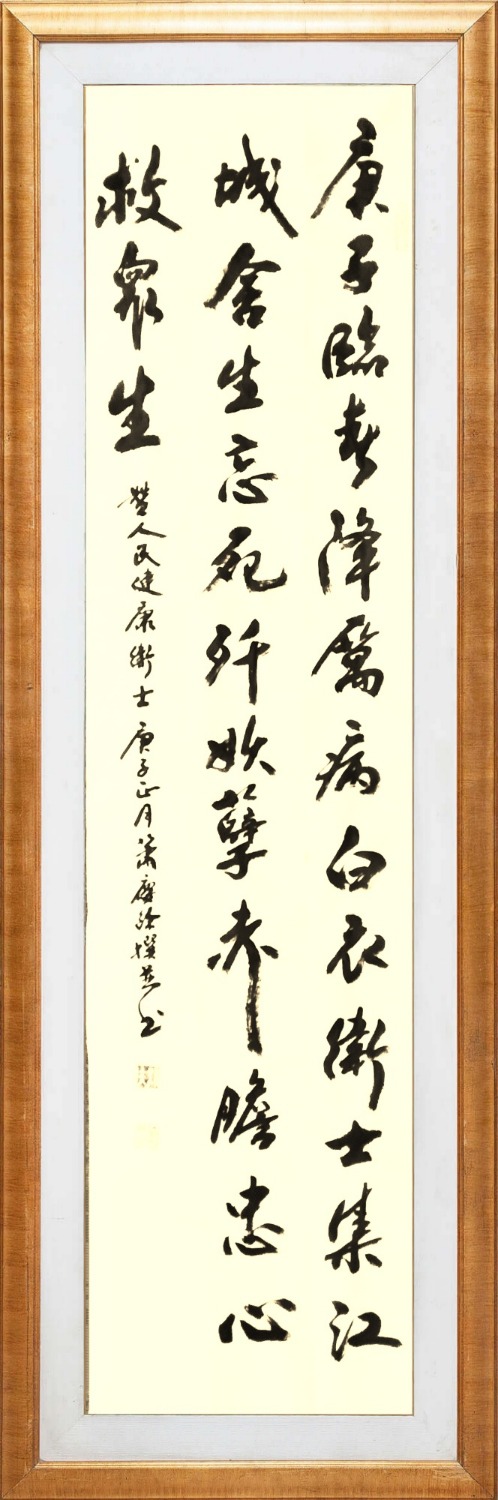 庚子臨春降厲病白衣衛士集江
城舍生忘死歼妖孽赤膽忠心
救眾生
赞人民健康衛士庚子正月萧 撰并书